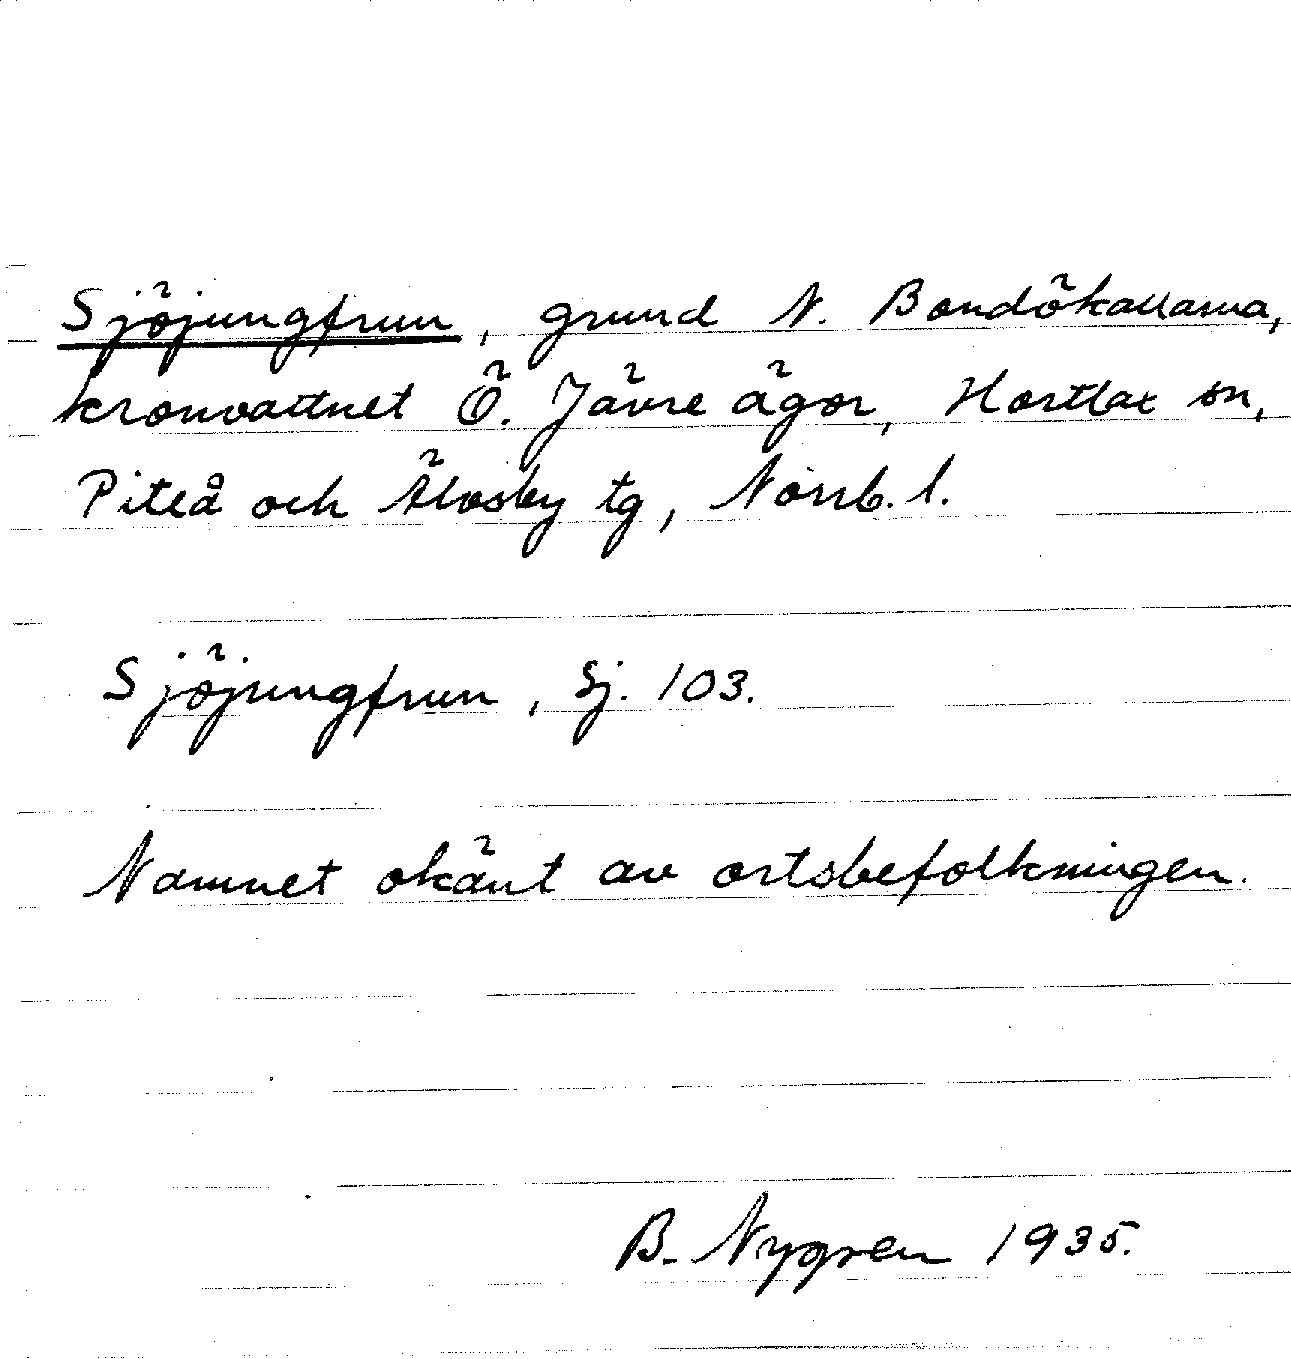 Sjöjungfrun, grund N. Bondökallarna,
kronvattnet Ö. Jävre ägor, Hortlax sn,
Piteå och Älvsby tg, Norrb. l.
Sjöjungfrun, Sj. 103.
Namnet okänt av ortsbefolkningen.
B. Nygren 1935.